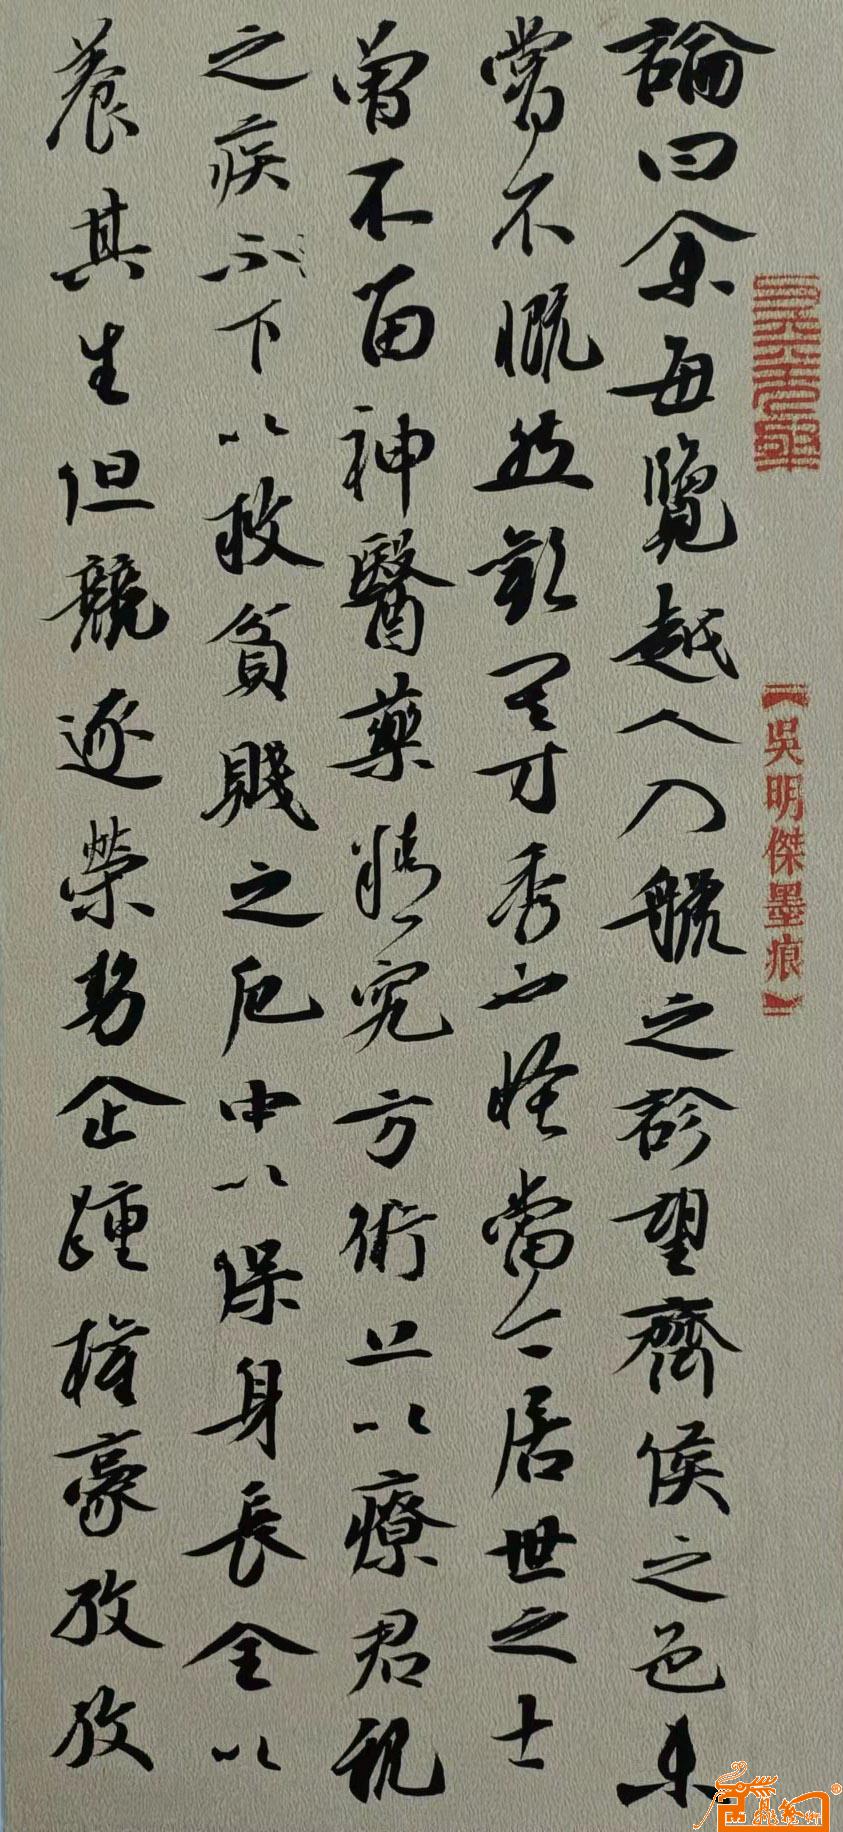 【吳明傑墨痕】
論曰余每覽越人入虢之診望齊侯之色未
嘗不慨然歎其才秀也怪當今居世之士
曾不留神醫藥精究方術上以療君親
之疾不下以救貧賤之厄中以保身長全以
養其生但競逐榮勢企踵權豪孜孜